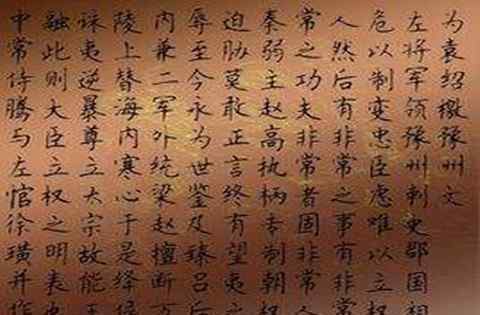 为袁绍檄豫州文
左将军领豫州刺史郡国相
危以制变忠臣虑难以立权
人然后有非常之事有非常
常之功夫非常者固非常人
秦弱主赵高执柄专制朝权
迫胁莫敢正言终有望夷之
辱至今永为世鉴及臻吕后
内兼二军外统梁赵擅断万
陵上替海内寒心于是绛侯
诛夷逆暴尊立太宗故能王
融此则大臣立权之明表也
中常侍腾与左悺徐璜并作